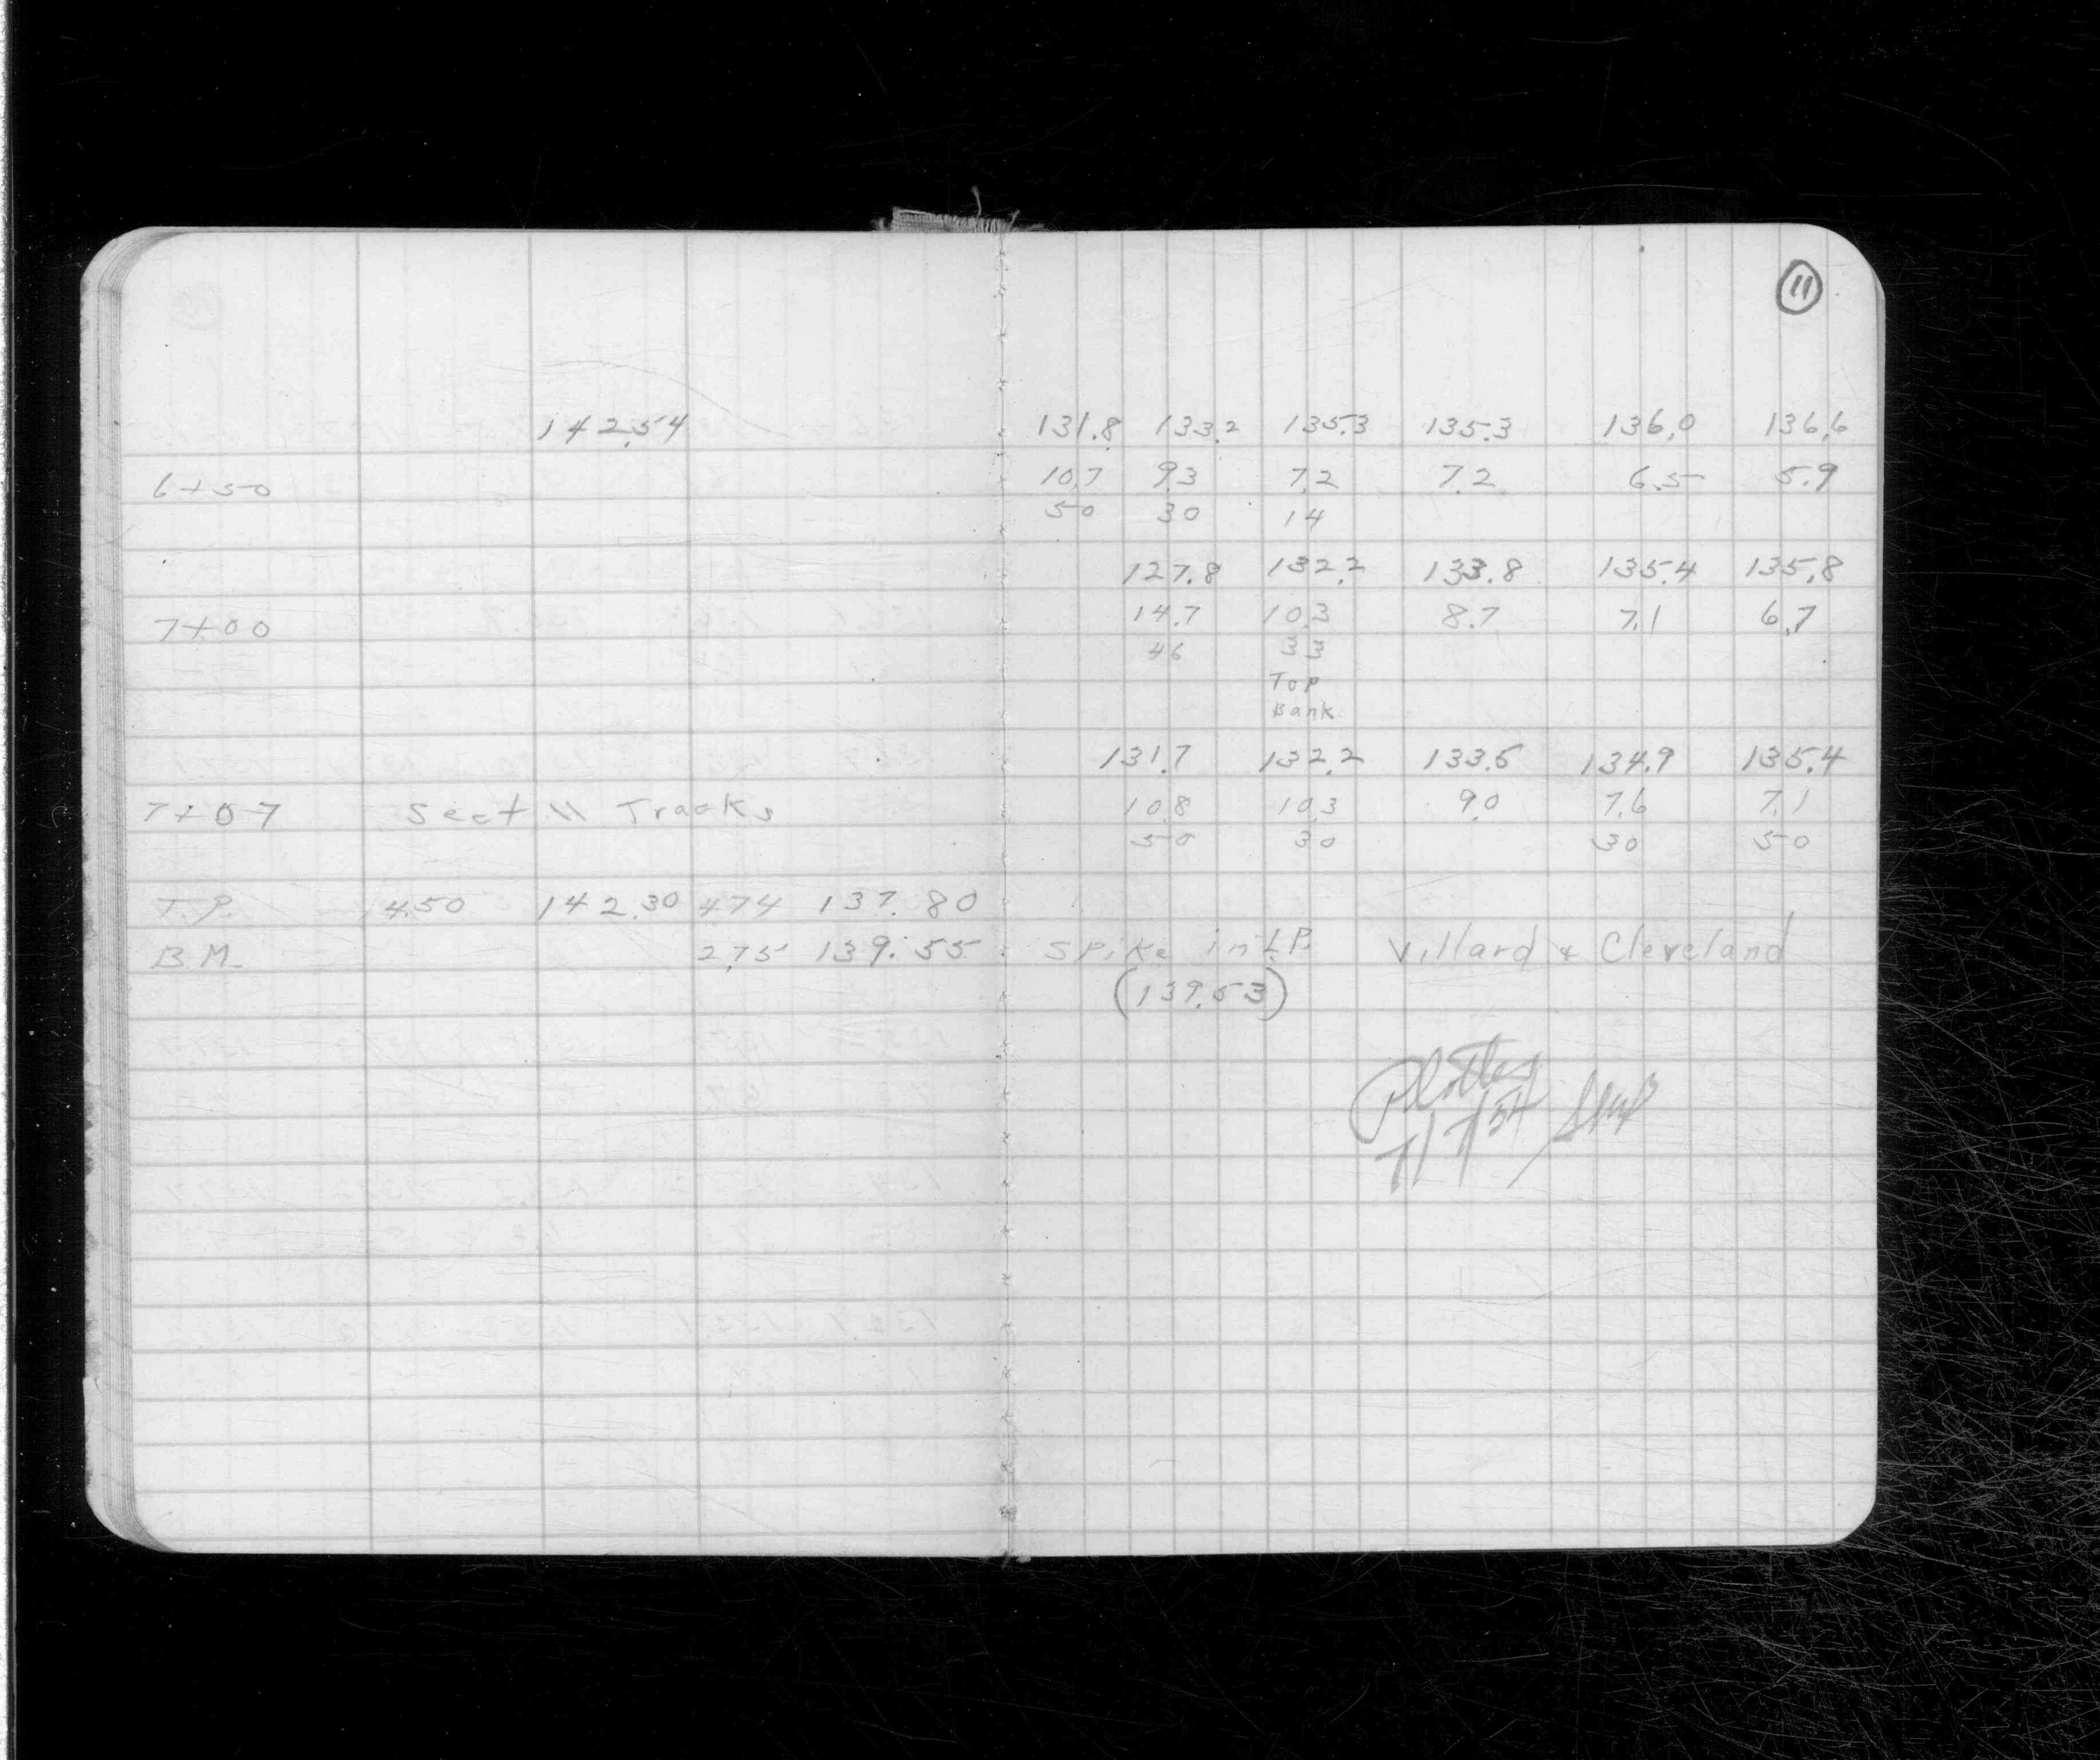 11
142.54 131.8 133.2 135.3 135.3 136.0 136.6
6+50 10.7 9.3 7.2 7.2 6.5 5.9
50 30 14
127.8 132.2 133.8 135.4 135.8
7+00 14.7 10.3 8.7 7.1 6.7
46 33
Top
Bank
131.7 132.2 133.5 134.9 135.4
7+07 Sect \\ Tracks 10.8 10.3 9.0 7.6 7.1
50 30 30 50
T.P. 4.50 142.30 4.74 137.80
B.M. 2.75 139.55 Spike in L.P. Villard & Cleveland
(139.53)
Plotted
7/7/54